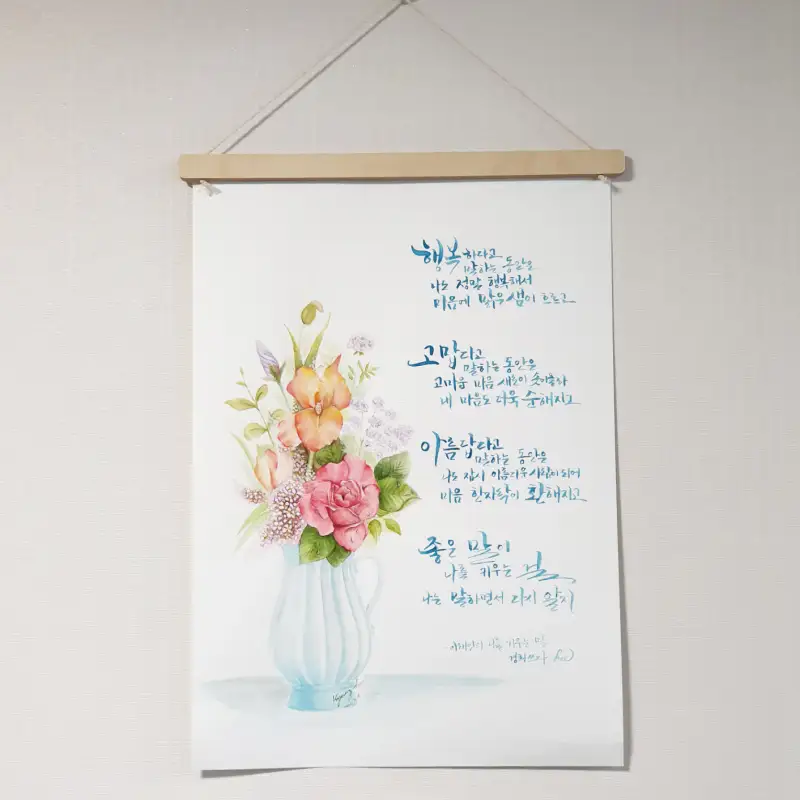 행복하다고
말하는 동안은
나도 정말 행복해서
마음에 맑은 샘이 흐르고
고맙다고
말하는 동안은
고마움 마음 새로이 솟아올라
내 마음도 더욱 순해지고
아름답다고
말하는 동안은
나도 잠시 아름다운 사람이 되어
마음 한자락이 환해지고
좋은 말이
나를 키우는 걸
나는 말하면서 다시 알지
나를 키우는 말